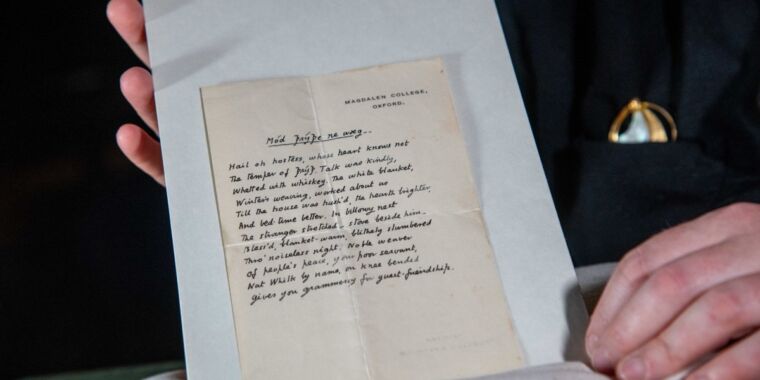 MAGDALEN COLLEGE,
OXFORD.
Mód Þrýþe ne wæg—
Hail oh hostess, whose heart knows not
The temper of Þrýþ! Talk was kindly,
Whetted with whiskey. The white blanket,
Winter's weaving, worked about us
Till the house was hush'd, the hearth brighter,
And bed-time better. In billowy nest
The stranger stretched – stove beside him –
Bless'd, blanket-warm, blithely slumbered
Thro' noiseless night. Noble weaver
Of people's peace, your poor servant,
Nat Whilk by name, on knee bended
gives you grammercy for guest-friendship.